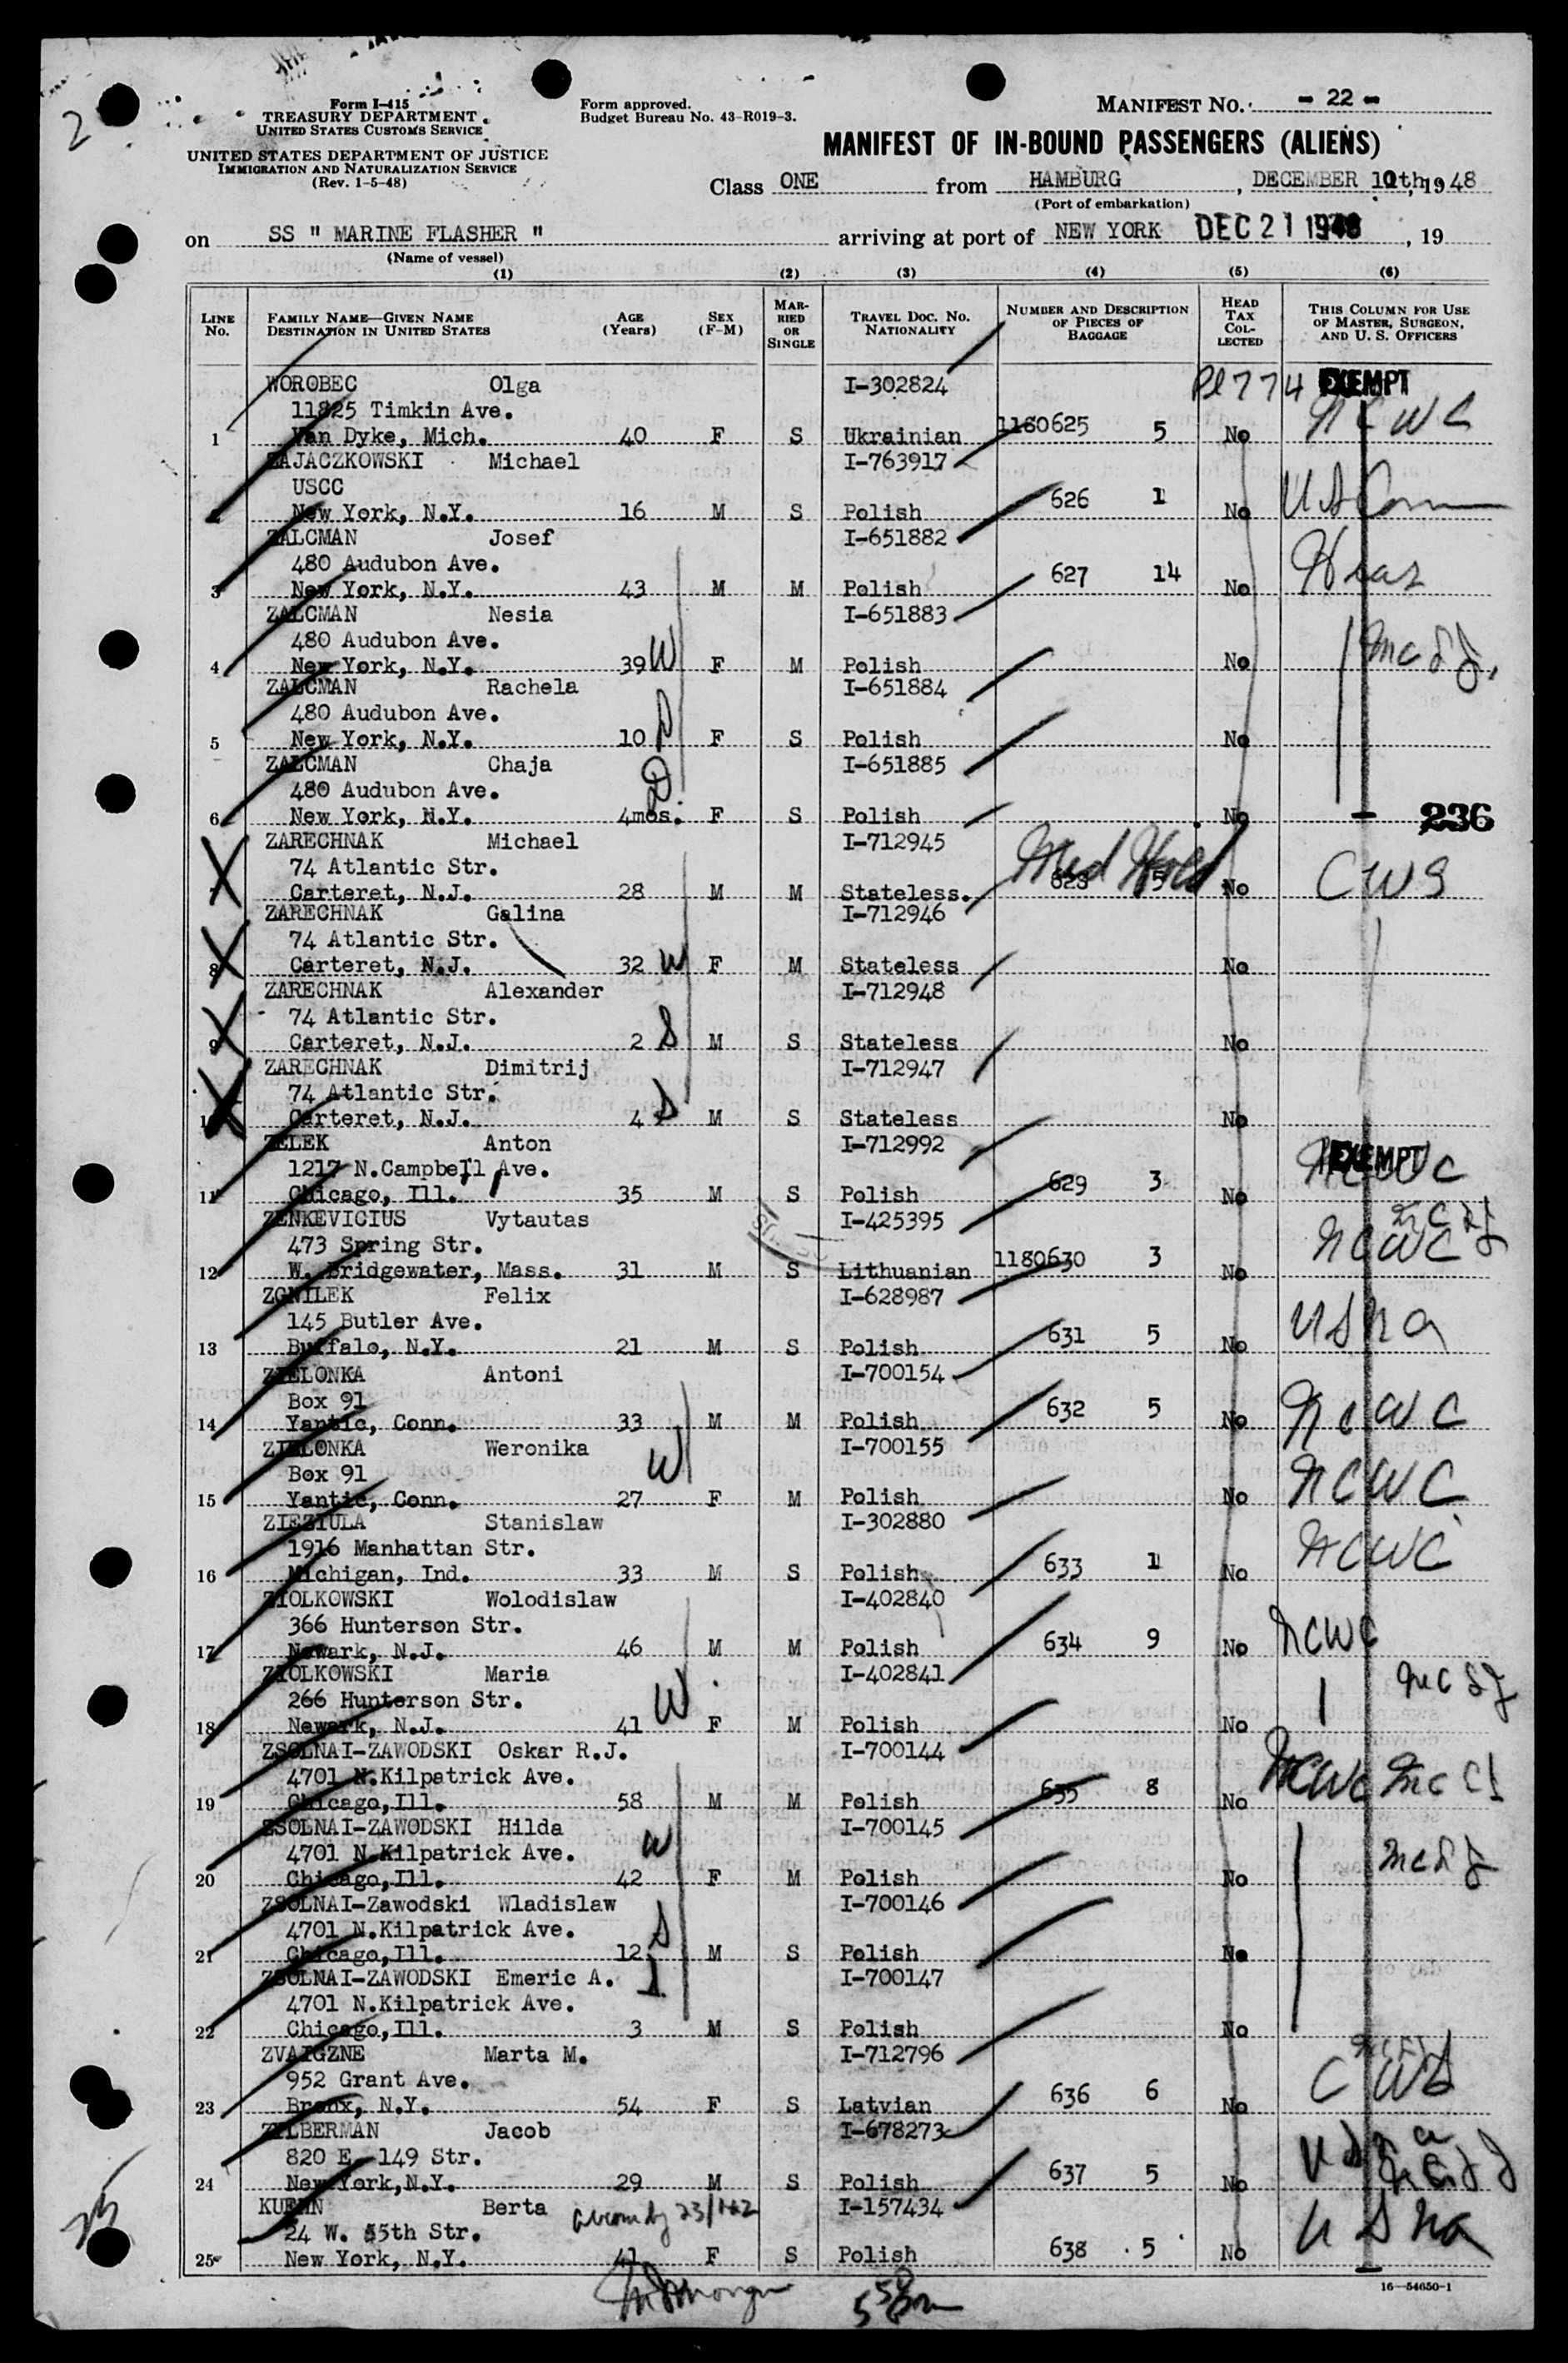 2
Form I-415
TREASURY DEPARTMENT
UNITED STATES CUSTOMS SERVICE
UNITED STATES DEPARTMENT OF JUSTICE
IMMIGRATION AND NATURALIZATION SERVICE
(Rev. 1-5-48)
Form approved.
Budget Bureau No. 43-R019-3.
MANIFEST NO. - 22 -
MANIFEST OF IN-BOUND PASSENGERS (ALIENS)
Class ONE from HAMBURG, DECEMBER 10th, 1948
(Port of embarkation)
on SS " MARINE FLASHER " arriving at port of NEW YORK DEC 21 1948, 19
(Name of vessel)
(1) (2) (3) (4) (5) (6)
LINE No. FAMILY NAME—GIVEN NAME DESTINATION IN UNITED STATES AGE (Years) SEX (F-M) MARRIED OR SINGLE TRAVEL DOC. NO. NATIONALITY NUMBER AND DESCRIPTION OF PIECES OF BAGGAGE HEAD TAX COLLECTED THIS COLUMN FOR USE OF MASTER, SURGEON, AND U. S. OFFICERS
WOROBEC Olga I-302824 774 EXEMPT
11825 Timkin Ave. NCWC
1 Van Dyke, Mich. 40 F S Ukrainian 1180625 5 No
ZAJACZKOWSKI Michael I-763917
USCC
2 New York, N.Y. 16 M S Polish 626 1 No US Com
ZALCMAN Josef I-651882
480 Audubon Ave.
3 New York, N.Y. 43 M M Polish 627 14 No Hias
ZALCMAN Nesia I-651883
480 Audubon Ave.
4 New York, N.Y. 39 W F M Polish No
ZALCMAN Rachela I-651884
480 Audubon Ave.
5 New York, N.Y. 10 D F S Polish No
ZALCMAN Chaja I-651885
480 Audubon Ave. D
6 New York, N.Y. 4mos. F S Polish No 236
ZARECHNAK Michael I-712945
74 Atlantic Str. Med Hold
7 Carteret, N.J. 28 M M Stateless. 628 5 No CWS
ZARECHNAK Galina I-712946
74 Atlantic Str.
8 Carteret, N.J. 32 W F M Stateless No
ZARECHNAK Alexander I-712948
74 Atlantic Str.
9 Carteret, N.J. 2 S M S Stateless No
ZARECHNAK Dimitrij I-712947
74 Atlantic Str.
10 Carteret, N.J. 4 S M S Stateless No
ZELEK Anton I-712992 EXEMPT NCWC
1217 N.Campbell Ave.
11 Chicago, Ill. 35 M S Polish 629 3 No
ZENKEVICIUS Vytautas I-425395
473 Spring Str. NCWC
12 W. Bridgewater, Mass. 31 M S Lithuanian 1180630 3 No
ZGNILEK Felix I-628987
145 Butler Ave.
13 Buffalo, N.Y. 21 M S Polish 631 5 No USNA
ZIELONKA Antoni I-700154
Box 91
14 Yantic, Conn. 33 M M Polish 632 5 No NCWC
ZIELONKA Weronika I-700155
Box 91 W
15 Yantic, Conn. 27 F M Polish No NCWC
ZIEZIULA Stanislaw I-302880
1916 Manhattan Str.
16 Michigan, Ind. 33 M S Polish 633 1 No NCWC
ZIOLKOWSKI Wolodislaw I-402840
366 Hunterson Str.
17 Newark, N.J. 46 M M Polish 634 9 No NCWC
ZIOLKOWSKI Maria I-402841
266 Hunterson Str. W
18 Newark, N.J. 41 F M Polish No
ZSOLNAI-ZAWODSKI Oskar R.J. I-700144
4701 N.Kilpatrick Ave.
19 Chicago,Ill. 58 M M Polish 635 8 No NCWC
ZSOLNAI-ZAWODSKI Hilda I-700145
4701 N.Kilpatrick Ave. W
20 Chicago,Ill. 42 F M Polish No
ZSOLNAI-Zawodski Wladislaw I-700146
4701 N.Kilpatrick Ave. S
21 Chicago,Ill. 12 M S Polish No
ZSOLNAI-ZAWODSKI Emeric A. I-700147
4701 N.Kilpatrick Ave.
22 Chicago,Ill. 3 M S Polish No
ZVAIGZNE Marta M. I-712796
952 Grant Ave. CWS
23 Bronx, N.Y. 54 F S Latvian 636 6 No
ZILBERMAN Jacob I-678273
820 E. 149 Str. USNA
24 New York,N.Y. 29 M S Polish 637 5 No
KUEHN Berta I-157434
24 W. 55th Str. USNA
25 New York, N.Y. 41 F S Polish 638 5 No
16—54650-1